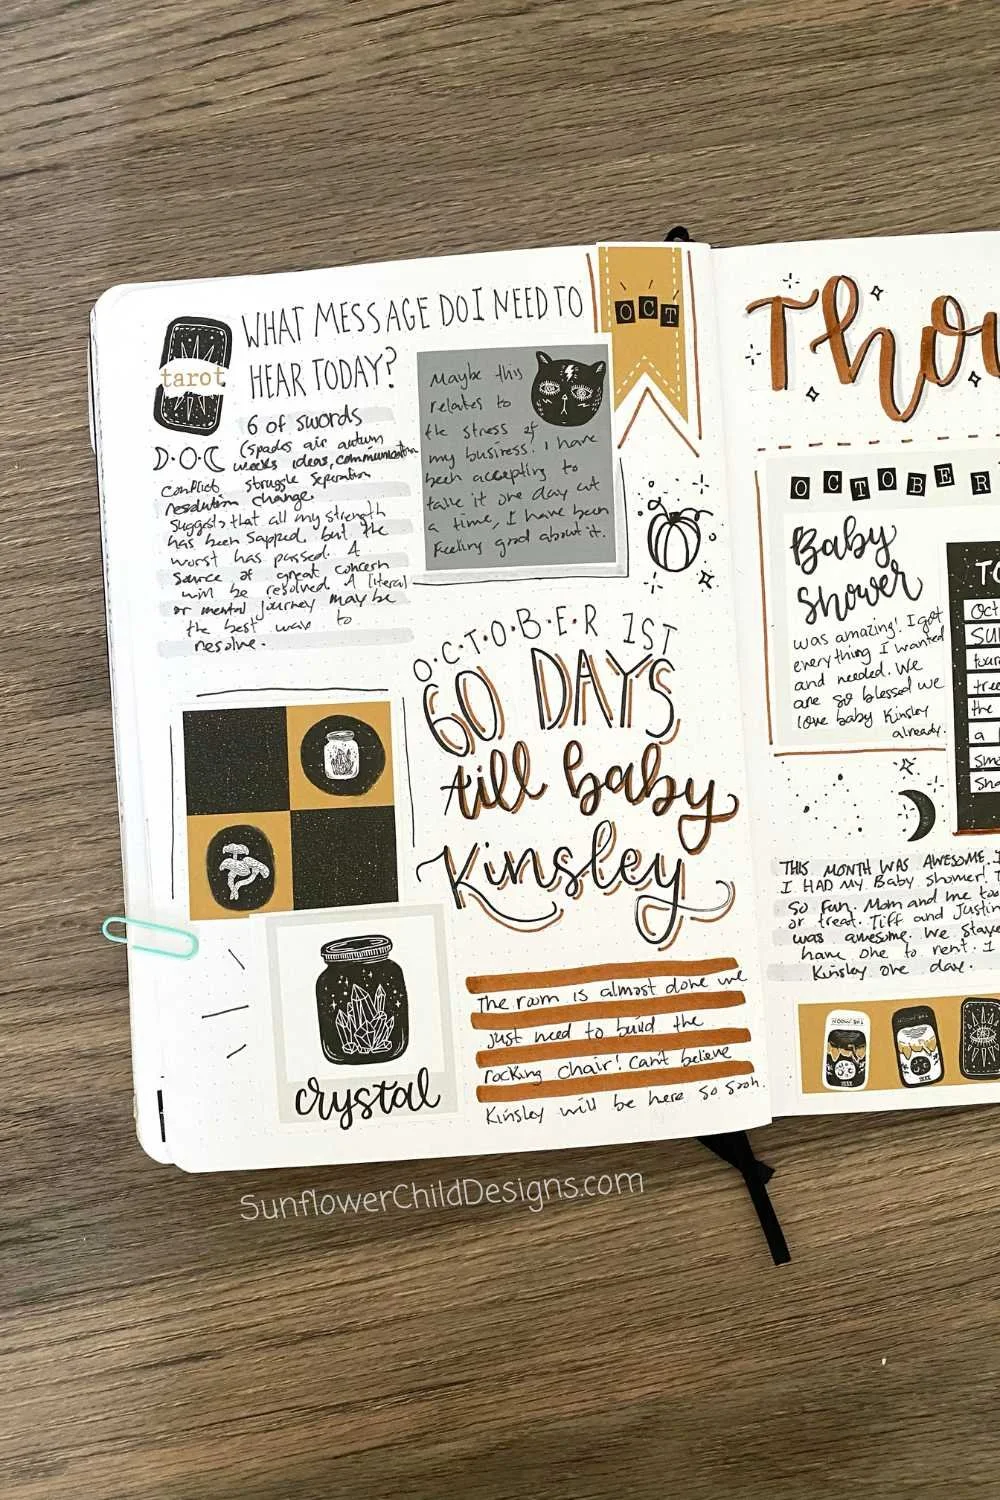 WHAT MESSAGE DO I NEED TO
HEAR TODAY?
tarot
6 of swords
(spades air autumn
weeks ideas, communication
conflict struggle separation
resolution change.
Suggests that all my strength
has been sapped, but the
worst has passed. A
source of great concern
will be resolved. A literal
or mental journey may be
the best way to
resolve.
OCT
Maybe this
relates to
the stress of
my business. I have
been accepting to
take it one day at
a time, I have been
feeling good about it.
O•C•T•O•B•E•R 1ST
60 DAYS
till baby
Kinsley
crystal
The room is almost done we
just need to build the
rocking chair! Can't believe
Kinsley will be here so soon.
Thou
OCTOBER
Baby
Shower
was amazing! I got
everything I wanted
and needed. We
are so blessed we
love baby Kinsley
already.
TO
Oct
tree
the
a
THIS MONTH WAS AWESOME. I
I HAD MY Baby shower! T
so fun. Mom and me too
or treat. Tiff and Justin
was awesome. We stay
have one to rent. I
Kinsley one day.
SunflowerChildDesigns.com